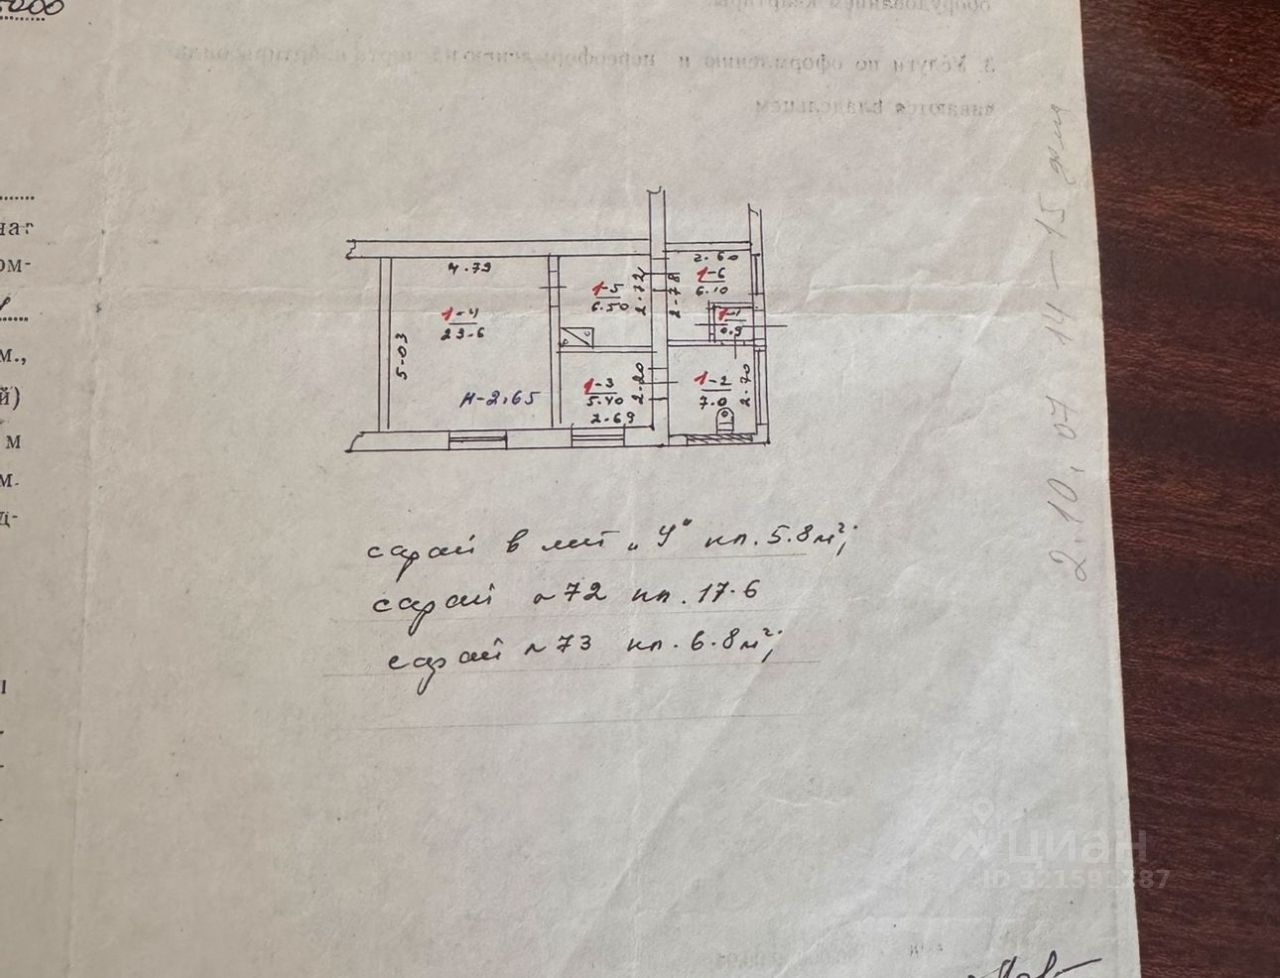 5000
наг
ом-
м.,
й)
м
м.
ц-
3. Услуги по оформлению и переоформлению паспорта квартиры
ваются владельцем
4.79
1-4
23.6
5-03
н-2.65
1-5
6.50
2.72
2-78
2.60
1-6
6.10
1-1
0.9
1-3
5.40
2.69
2-20
1-2
7.0
2.70
сарай в лит „У" кп. 5.8м²;
сарай №72 кп. 17.6
сарай №73 кп. 6.8м²;
2.10.07 14-15
циан
ID 321591287